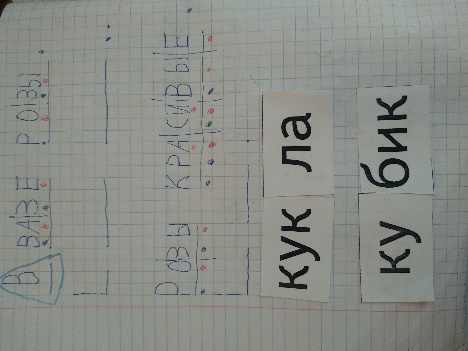 В ВАЗЕ РОЗЫ.
РОЗЫ КРАСИВЫЕ.
кук ла
ку бик